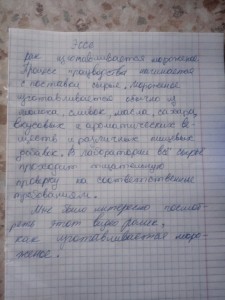 Эссе
Как изготавливается мороженое.
Процесс производства начинается
с поставки сырья. Мороженое
изготавливается обычно из
молока, сливок, масла, сахара,
вкусовых и ароматических ве-
ществ и различных пищевых
добавок. В лаборатории всё сырьё
проходит тщательную
проверку на соответствие
требованиям.
Мне было интересно посмот-
реть этот видео ролик,
как изготавливается моро-
женое.